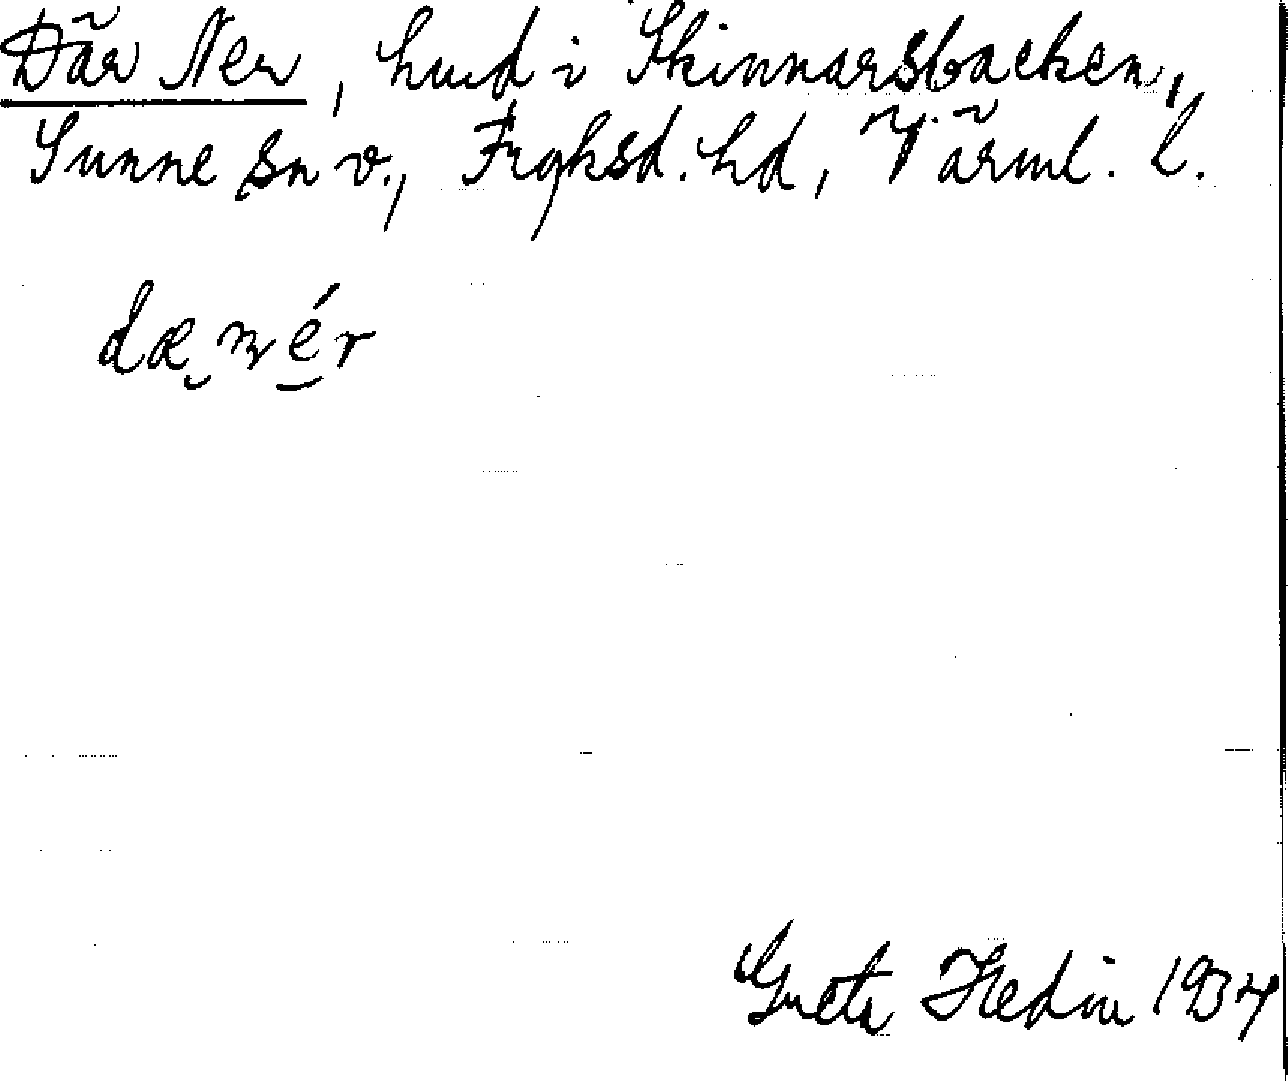 Där Ner, husd i Skinnarsbacken,
Sunne sn v., Fryksd. hd, Värml. l.
dæ nér
Greta Hedin 1934